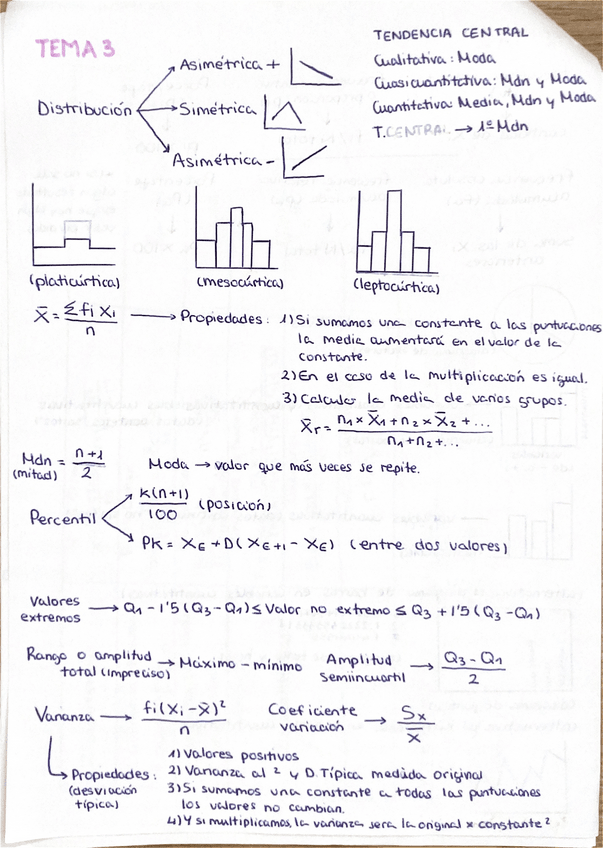 TEMA 3
TENDENCIA CENTRAL
Cualitativa: Moda
Cuasicuantitativa: Mdn y Moda
Cuantitativa: Media, Mdn y Moda
T. CENTRAL → 1º Mdn
Distribución
Asimétrica +
Simétrica
Asimétrica -
(platicúrtica)
(mesocúrtica)
(leptocúrtica)
X̄ = Σ fi Xi / n → Propiedades: 1) Si sumamos una constante a las puntuaciones
la media aumentará en el valor de la
constante.
2) En el caso de la multiplicación es igual.
3) Calcular la media de varios grupos.
X̄r = n1 × X̄1 + n2 × X̄2 + ... / n1 + n2 + ...
Mdn = n+1 / 2
(mitad)
Moda → valor que más veces se repite.
Percentil
K(n+1) / 100 (posición)
PK = XE + D(XE+1 - XE) (entre dos valores)
Valores
extremos → Q1 - 1'5 (Q3 - Q1) ≤ Valor no extremo ≤ Q3 + 1'5 (Q3 - Q1)
Rango o amplitud
total (impreciso) → Máximo - mínimo
Amplitud
semiincuartil → Q3 - Q1 / 2
Varianza → fi (Xi - x̄)² / n
Coeficiente
variación → Sx / x̄
Propiedades:
(desviación
típica)
1) Valores positivos
2) Varianza al ² y D. Típica medida original
3) Si sumamos una constante a todas las puntuaciones
los valores no cambian.
4) Y si multiplicamos, la varianza sera la original × constante²